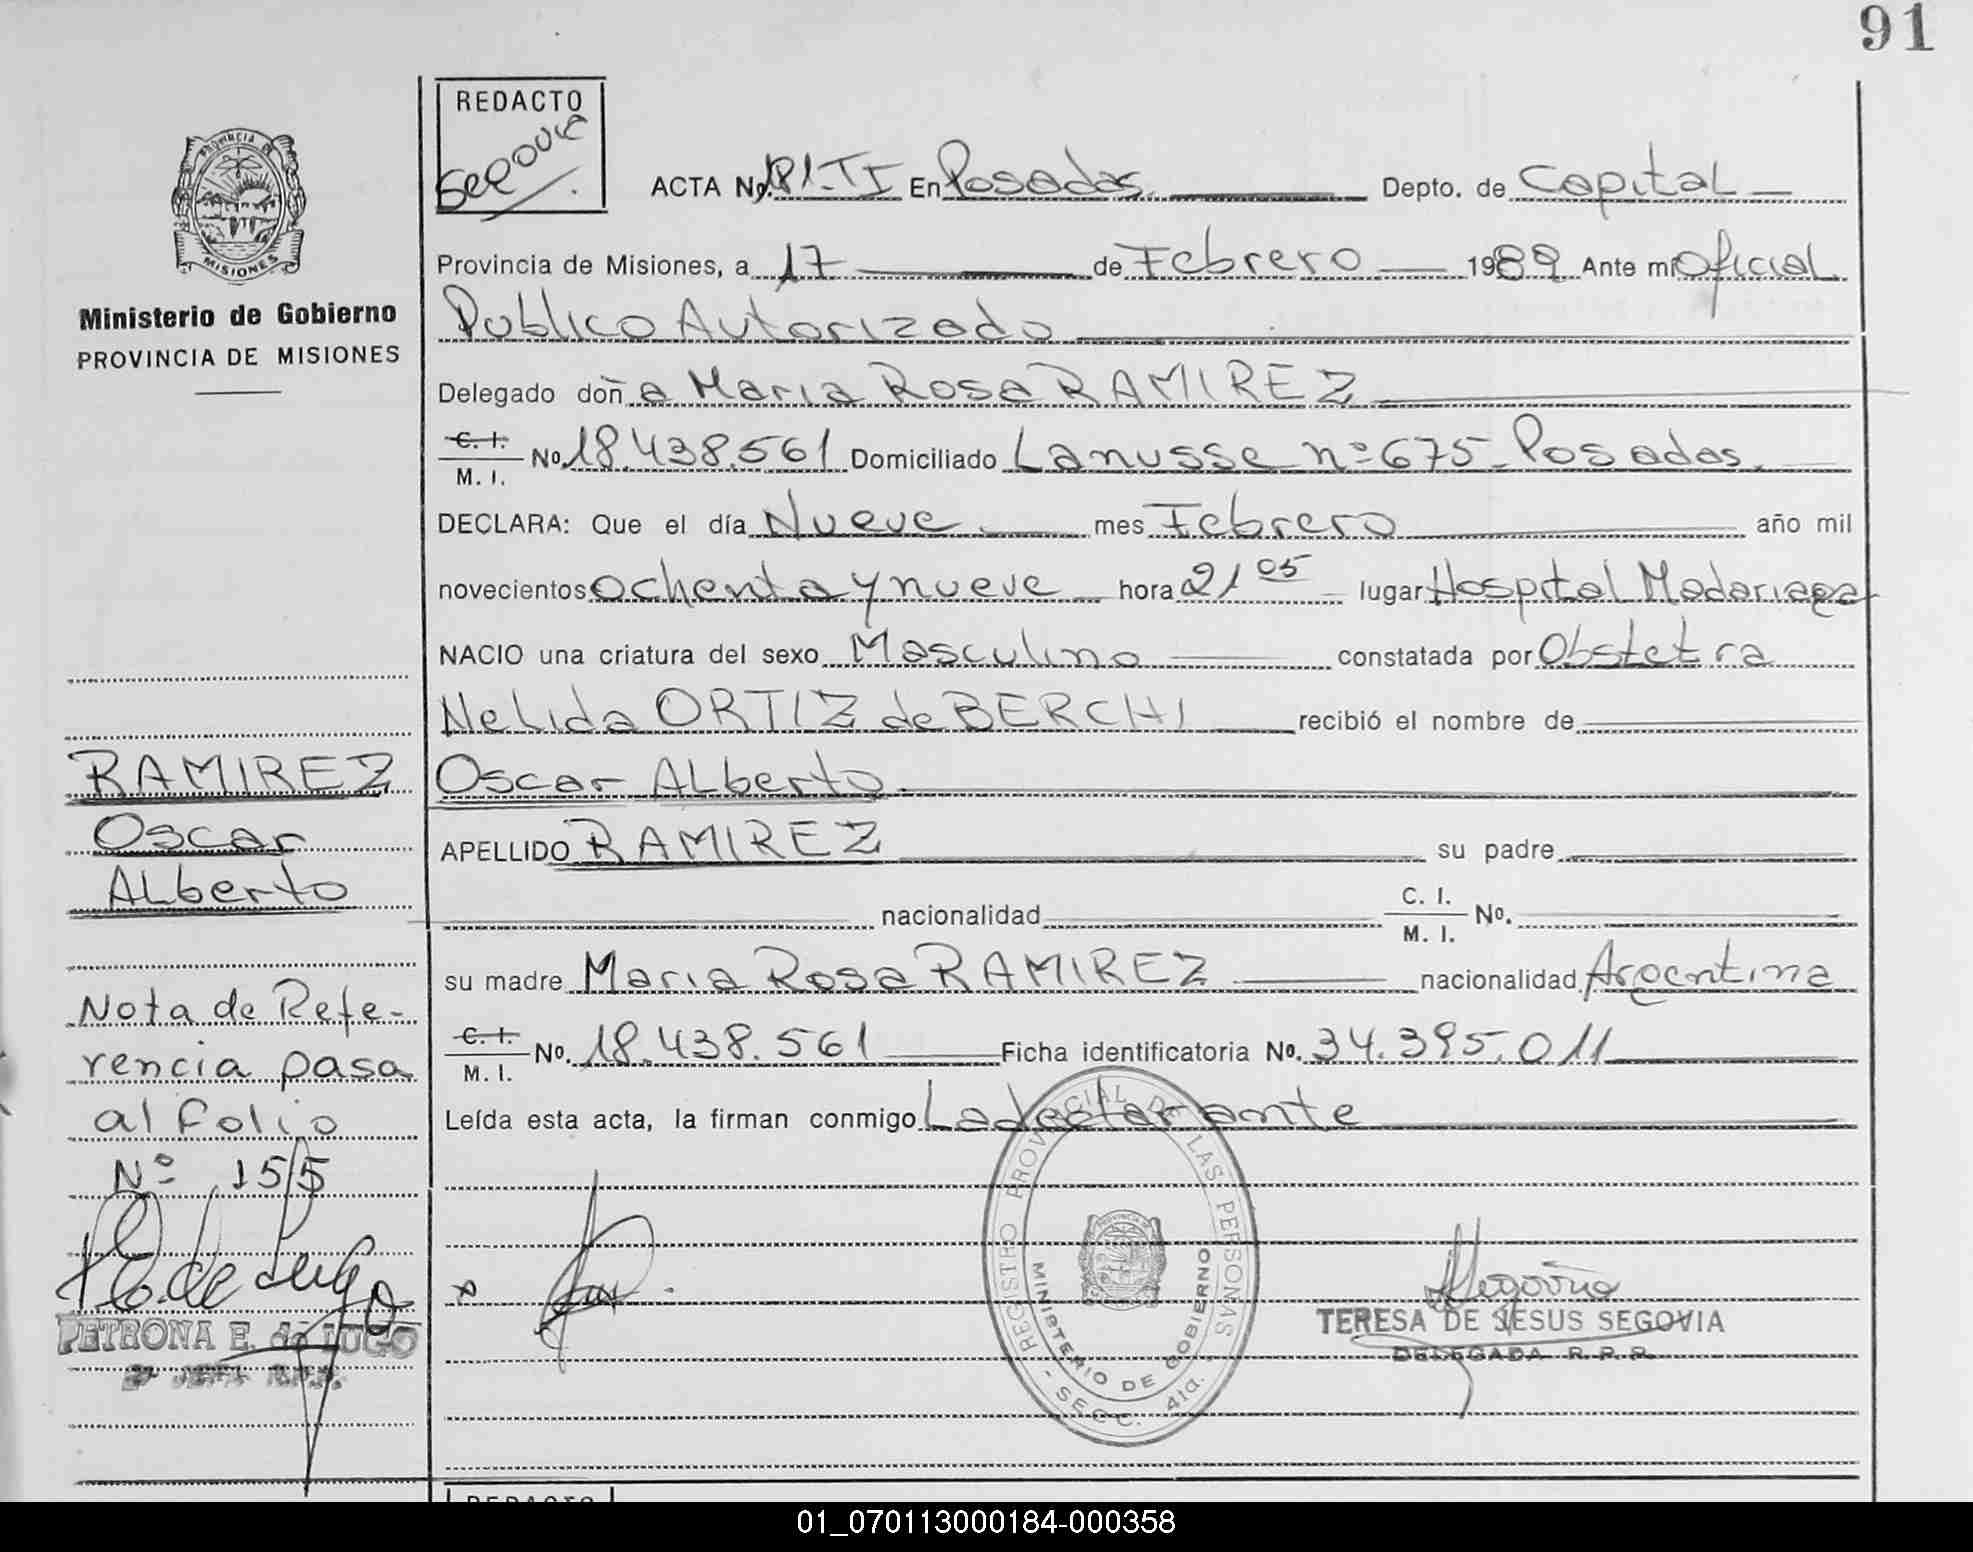 91
REDACTO
PROVINCIA DE
MISIONES
Ministerio de Gobierno
PROVINCIA DE MISIONES
ACTA No. 181-TI En Posadas. Depto. de Capital
Provincia de Misiones, a 17 de Febrero 1989 Ante mi Oficial
Publico Autorizado
Delegado doña Maria Rosa RAMIREZ
C. I. M. I. No. 18.438.561 Domiciliado Lanusse nº 675 - Posadas.
DECLARA: Que el día Nueve mes Febrero año mil
novecientos ochenta y nueve hora 21 05 lugar Hospital Madariaga
NACIO una criatura del sexo Masculino constatada por Obstetra
Nelida ORTIZ de BERCHI recibió el nombre de
Oscar Alberto.
APELLIDO RAMIREZ su padre
nacionalidad C. I. M. I. No.
su madre Maria Rosa RAMIREZ nacionalidad Argentina
C. I. M. I. No. 18.438.561 Ficha identificatoria No. 34.395.011
Leída esta acta, la firman conmigo La declarante
RAMIREZ
Oscar
Alberto
Nota de Refe-
rencia pasa
al folio
Nº 155
P. E. de Lugo
PETRONA E. de LUGO
REGISTRO PROVINCIAL DE LAS PERSONAS
MINISTERIO DE GOBIERNO
- SECC. 4ta. -
Segovia
TERESA DE JESUS SEGOVIA
DELEGADA R. P. P.
REDACTO
01_070113000184-000358